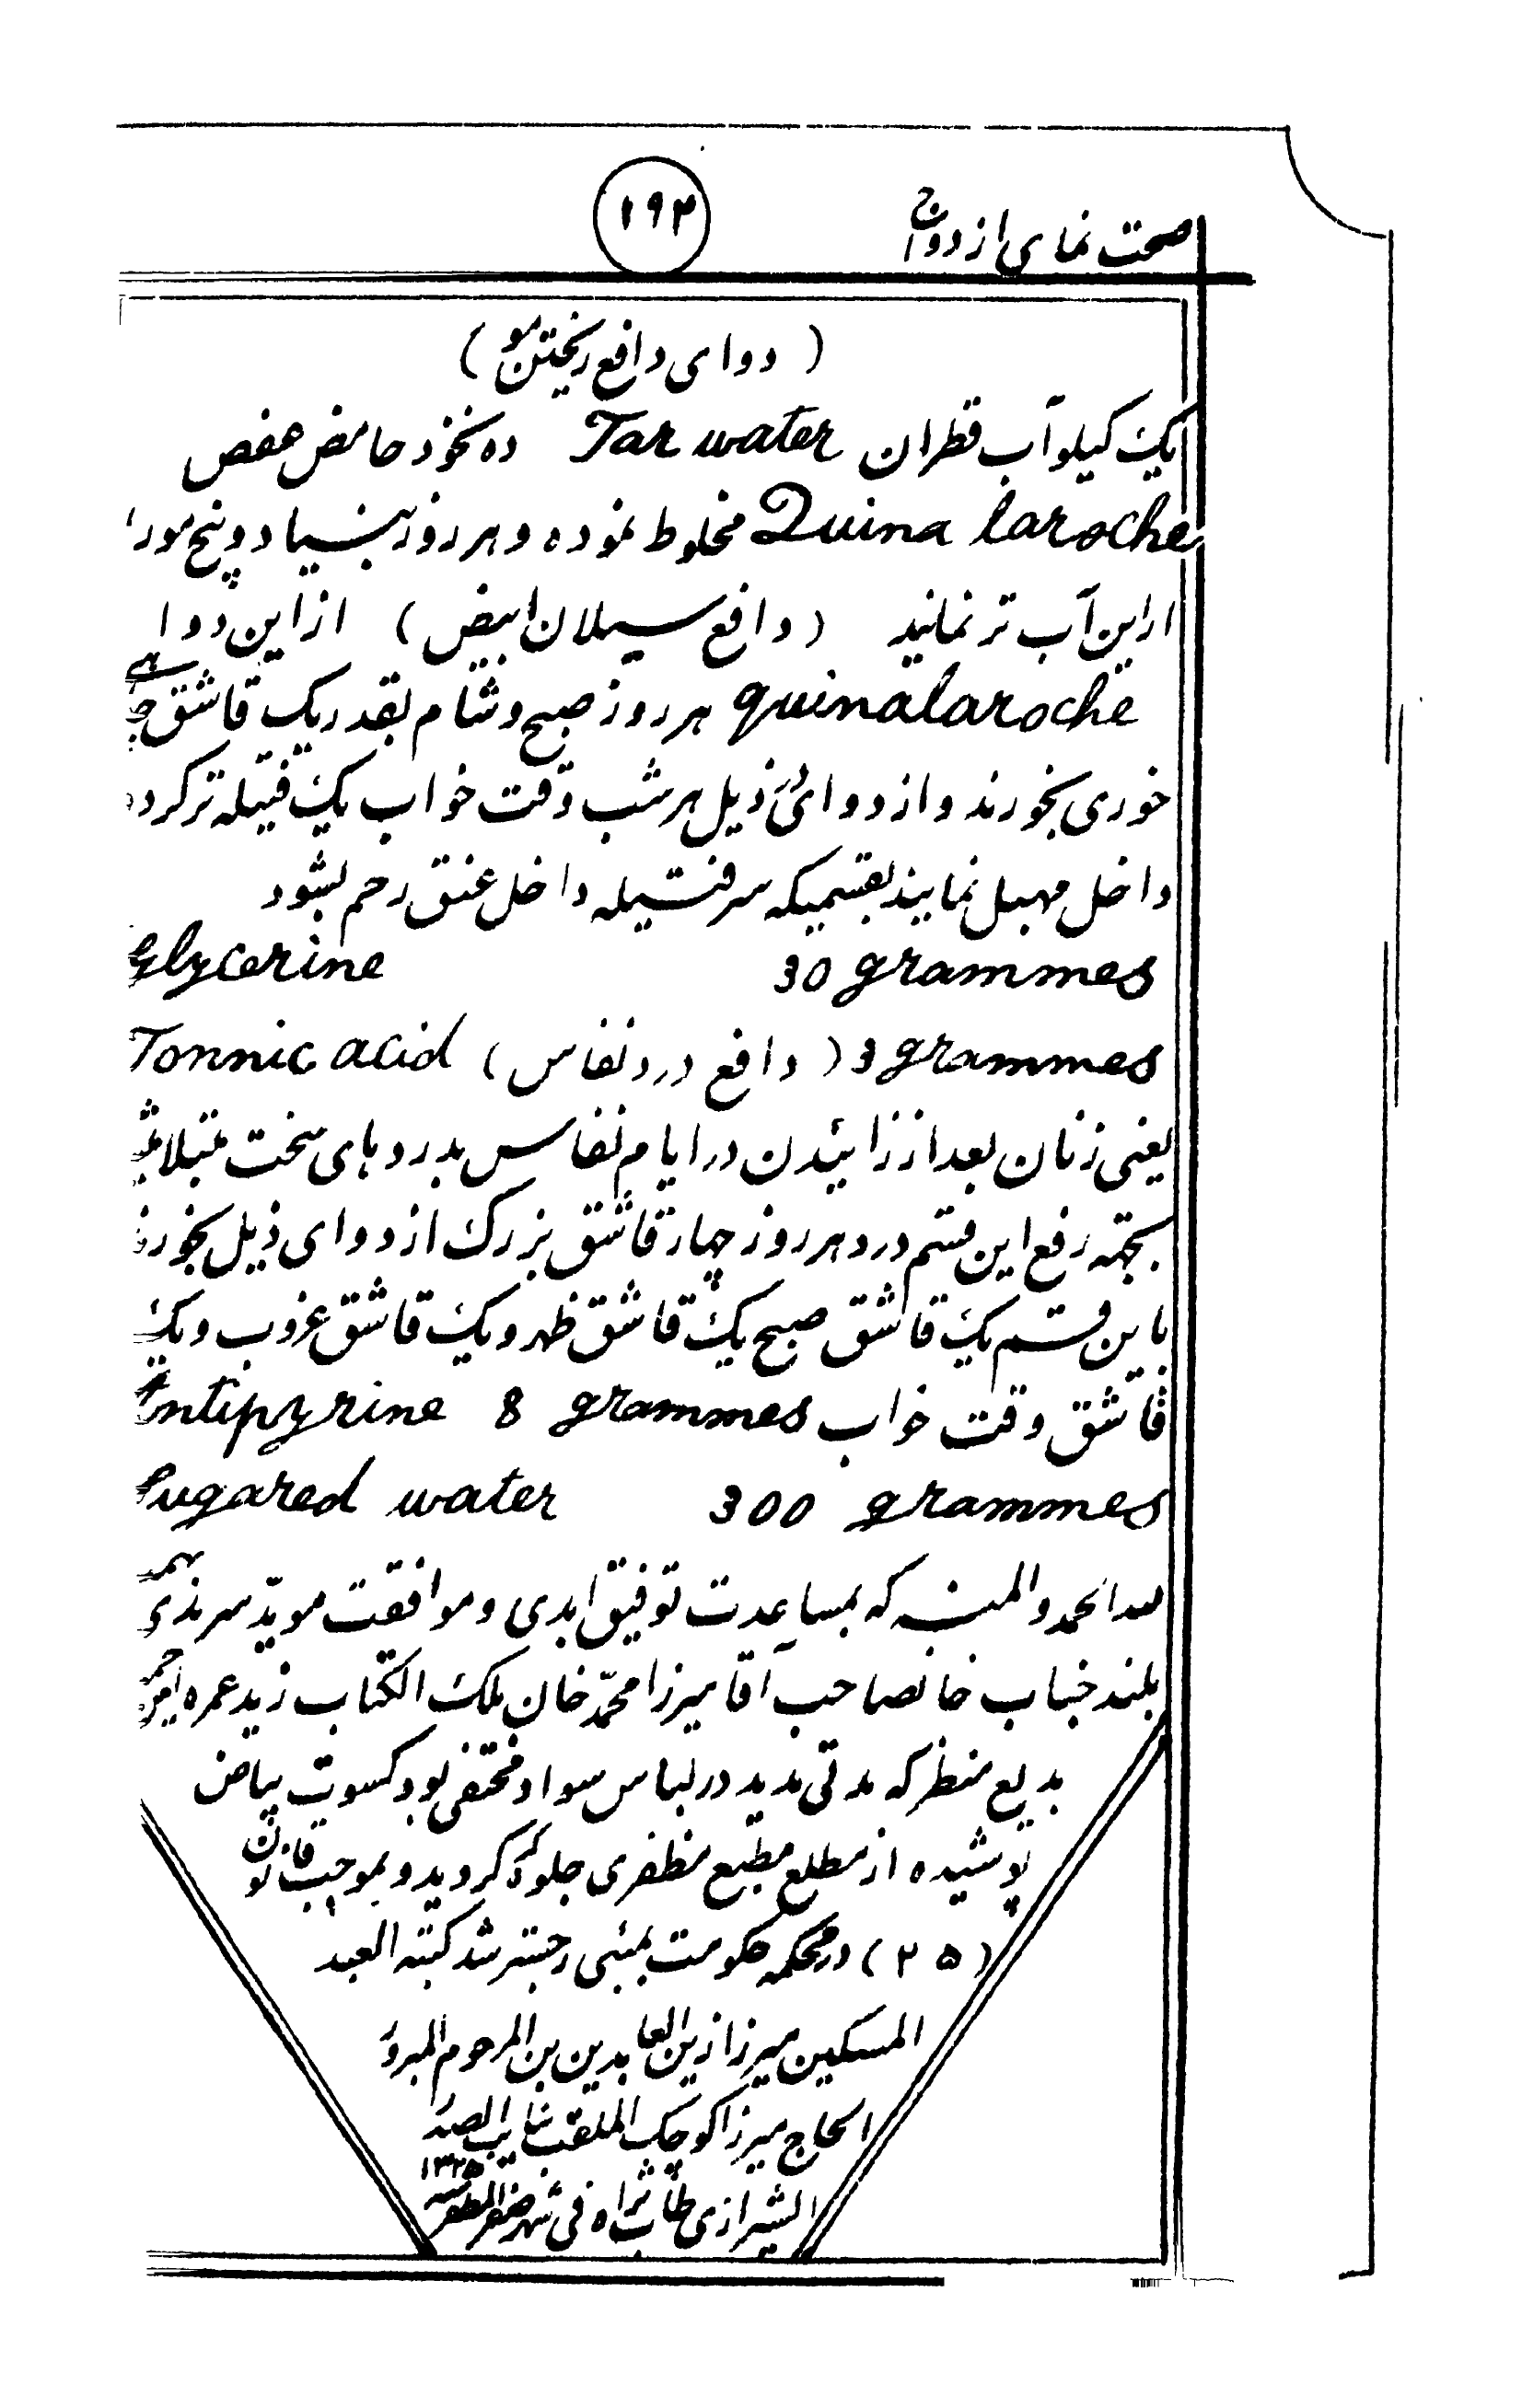 صحت نمای ازدواج
۱۹۳
(دوای دافع ریختن مو)
یک کیلو آب قطران Tar water ده نخود حامض عفص
Quina laroche مخلوط نموده و هر روز بنیاد و پنج مورا
ازاین آب تر نمایند (دافع سیلان ابیض) ازاین دوا
quinalaroche هر روز صبح و شام بقدر یک قاشق
خوری بخورند و از دوای ذیل هر شب وقت خواب یک فتیله تر کرده
داخل مهبل نمایند بقسمیکه سر فتیله داخل عنق رحم بشود
Glycerine 30 grammes
Tonnic acid (دافع درد نفاس) 3 grammes
یعنی زنان بعد از زائیدن در ایام نفاس بدردهای سخت مبتلا
بجهته رفع این قسم درد هر روز چهار قاشق بزرک از دوای ذیل بخورند
باین قسم یک قاشق صبح یک قاشق ظهر و یک قاشق غروب و یک
قاشق وقت خواب Antipyrine 8 grammes
Sugared water 300 grammes
لله الحمد والمنه که بمساعدت توفیق ابدی و موافقت موید سرمدی
بلند جناب خانصاحب آقا میرزا محمّد خان ملک الکتاب زید عمره
بدیع منظر که مدتی مدید در لباس سواد مختفی بود کسوت بیاض
پوشیده از مطلع مطبع مظفری جلوه گر گردید و بموجب قانون
(۲۵) در محکمه حکومت بمبئی رجستر شد کتبه العبد
المسکین میرزا زین العابدین بن المرحوم المبرور
الحاج میرزا کوچک الملقب بنایب الصدر
الشیرازی طاب ثراه فی شهر صفر المظفر سنه ۱۳۲۵